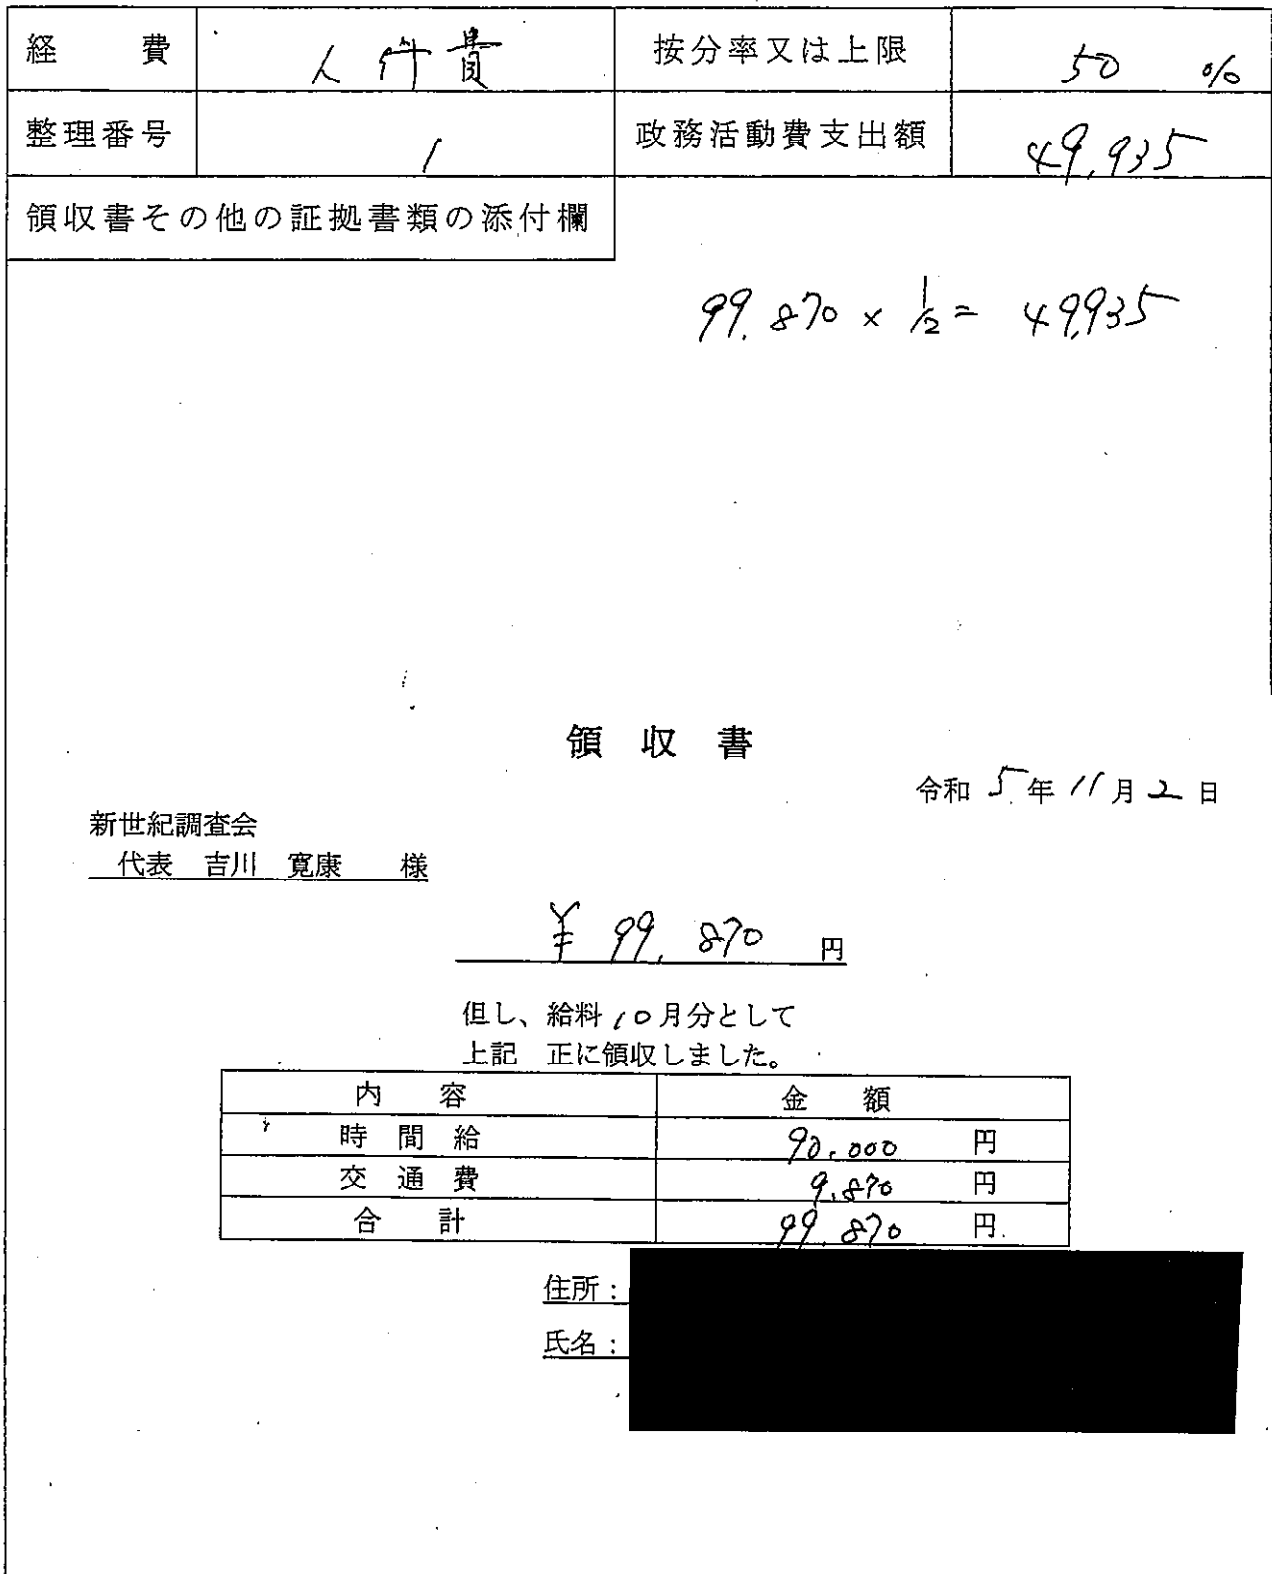 経費 人件費 按分率又は上限 50 %
整理番号 1 政務活動費支出額 49,935
領収書その他の証拠書類の添付欄
99,870 × 1/2 = 49,935
領収書
令和 5年 11月 2日
新世紀調査会
代表 吉川 寛康 様
¥ 99,870 円
但し、給料10月分として
上記 正に領収しました。
内容 金額
時間給 90,000 円
交通費 9,870 円
合計 99,870 円
住所：
氏名：